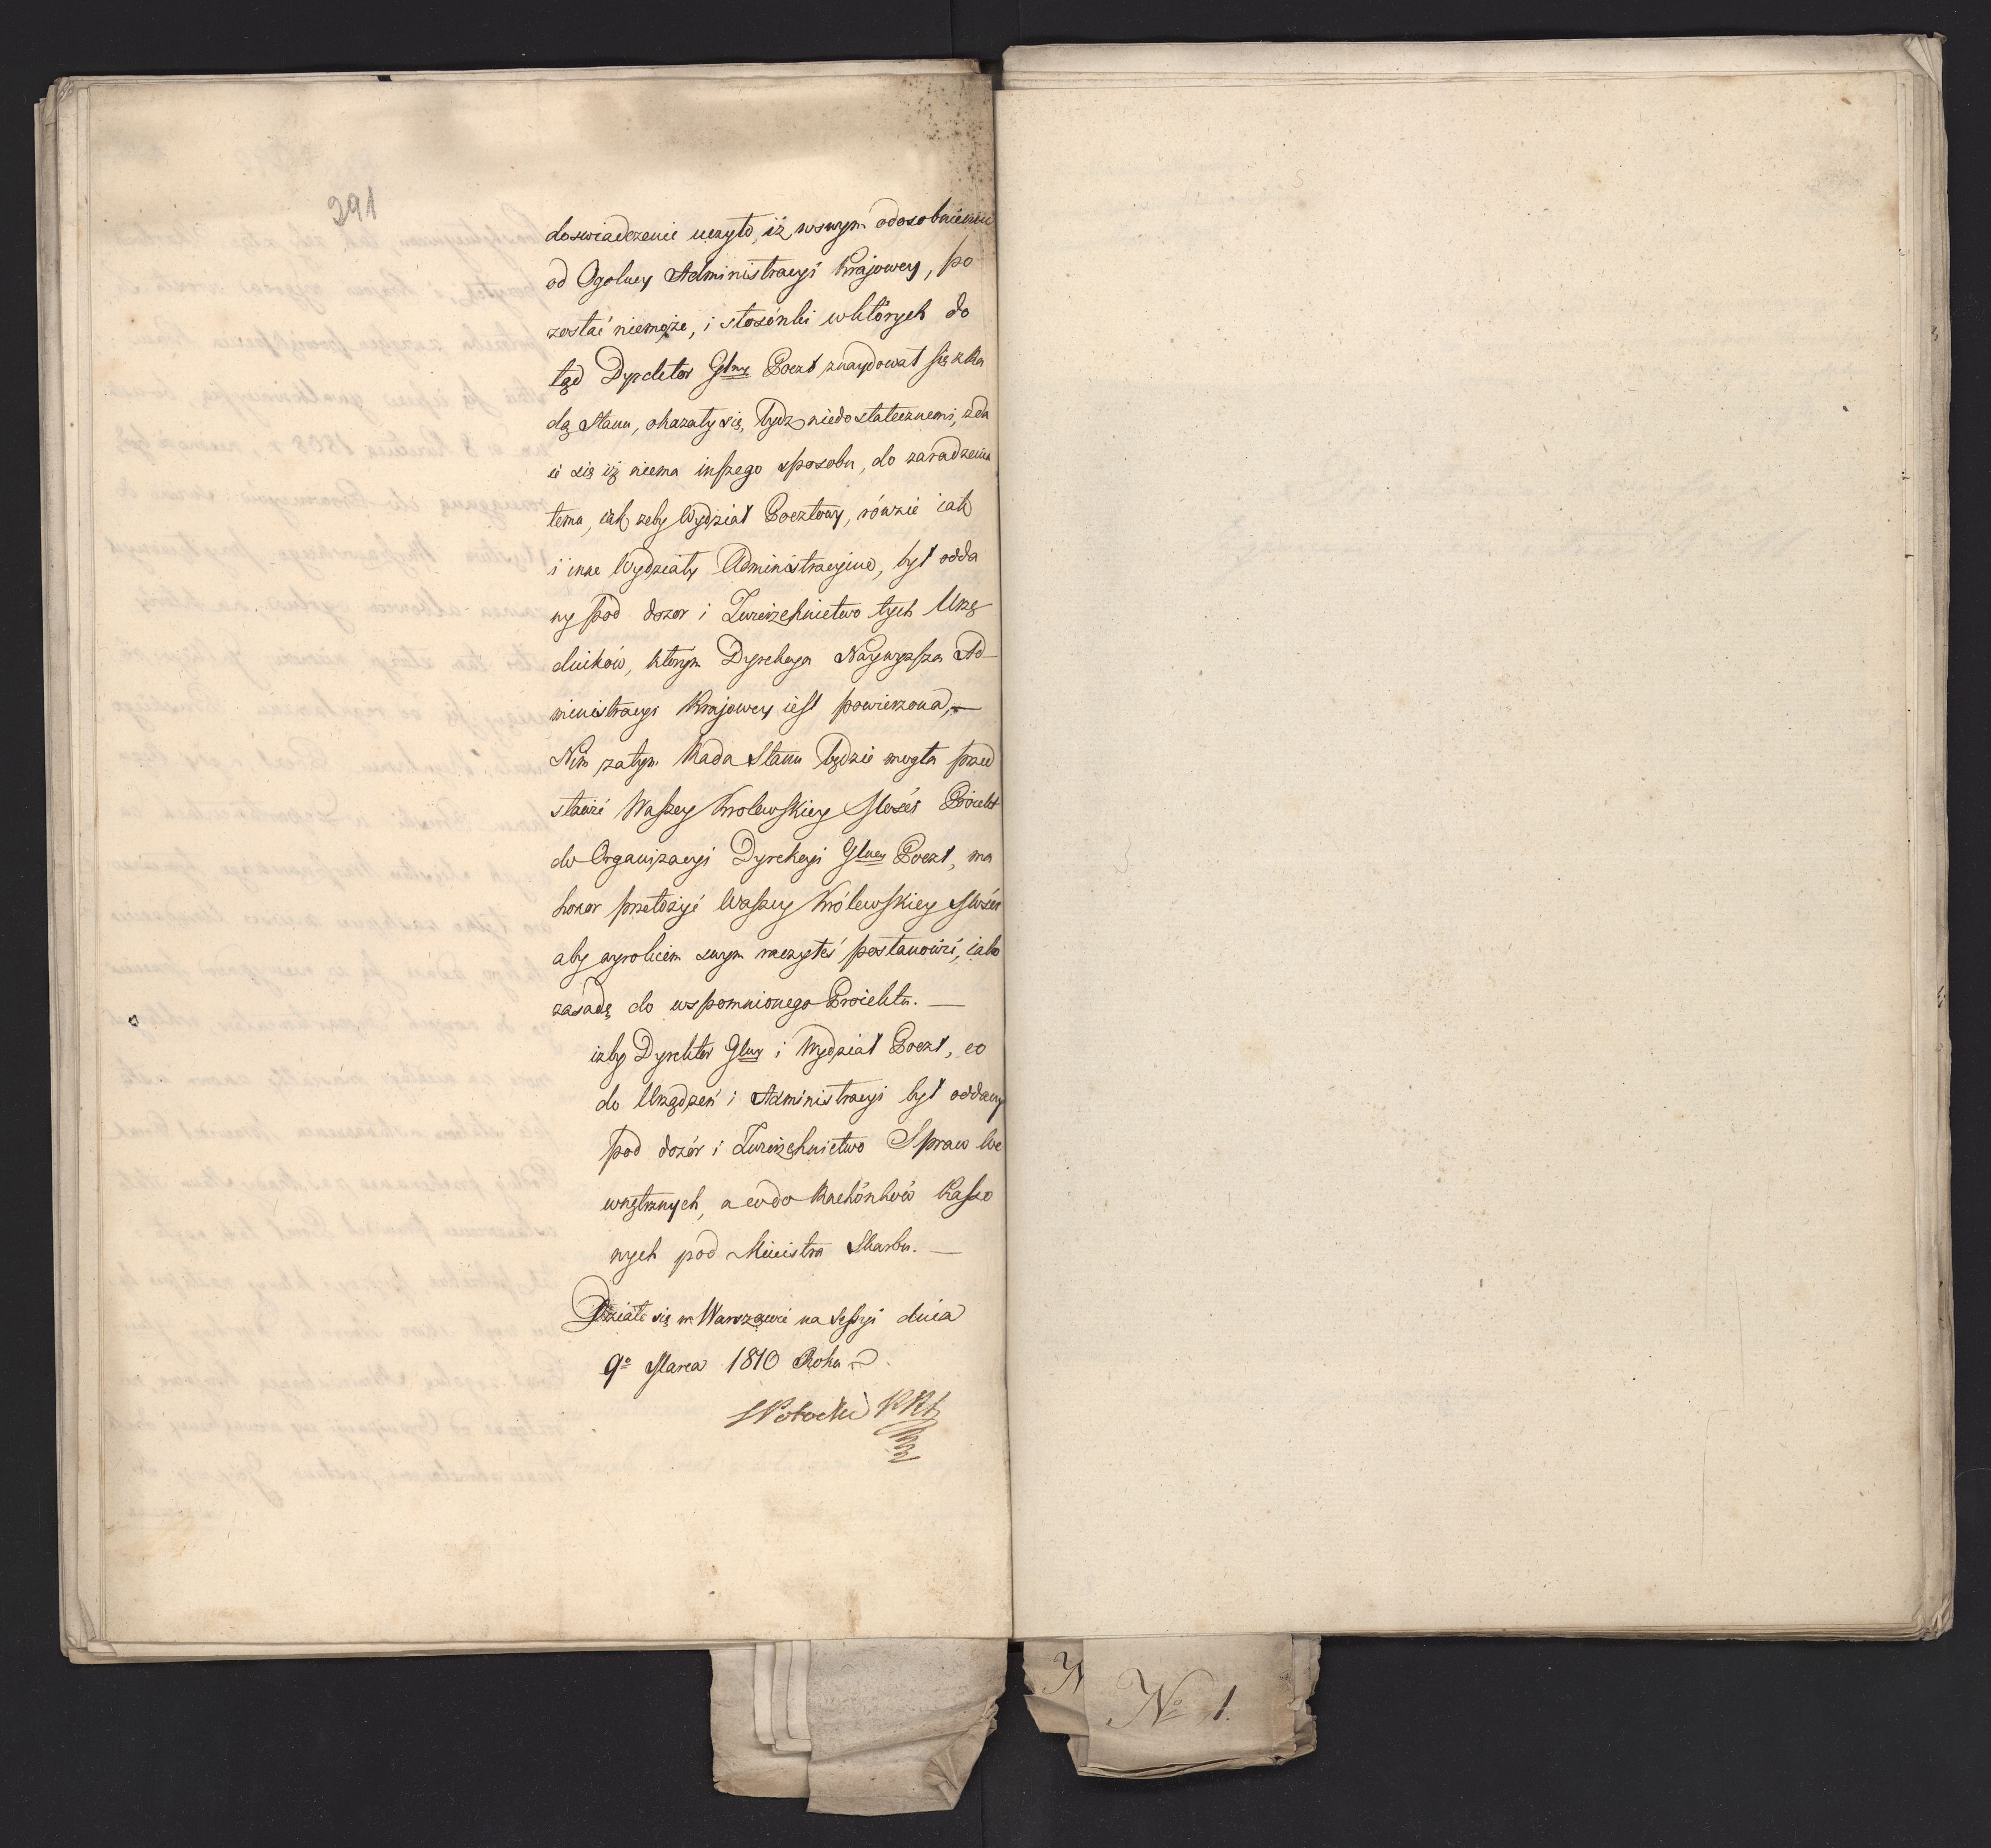 291
doswiadczenie uczyło, iż w swym odosobnieniu
od Ogolney Administracyi Krajowey, po
zostać niemoże, i stosónki w których do
tąd Dyrektor Głny Poczt znaydował się z Ra
dą Stanu, okazały się, bydź niedostatecznemi, zda
ie się iż niema inszego sposobu, do zaradzenia
temu, iak żeby Wydział Pocztowy, równie iak
i inne Wydziały Administracyine, był odda
ny pod dozor i Zwierzchnictwo tych Urzę
dników, którym Dyrekcya Naywyższa Ad-
ministracyi Krajowey iest powierzona,—
Nim zatym Rada Stanu będzie mogła przed
stawić Waszey Krolewskiey Mości Proiekt
do Organizacyi Dyrekcyi Głney Poczt, ma
honor przełożyć Waszey Królewskiey Mości
aby wyrokiem swym raczyłeś postanowić, iako
zasadę do wspomnionego Proiektu. —
iżby Dyrektor Głny i Wydział Poczt, co
do Urządzeń i Administracyi był oddany
pod dozór i Zwierzchnictwo Spraw We
wnętrznych, a co do Rachónków Kasso
wych pod Ministra Skarbu. —
Działo się w Warszawie na Sessyi dnia
9º Marca 1810 Roku
S Potocki
Nº 1.